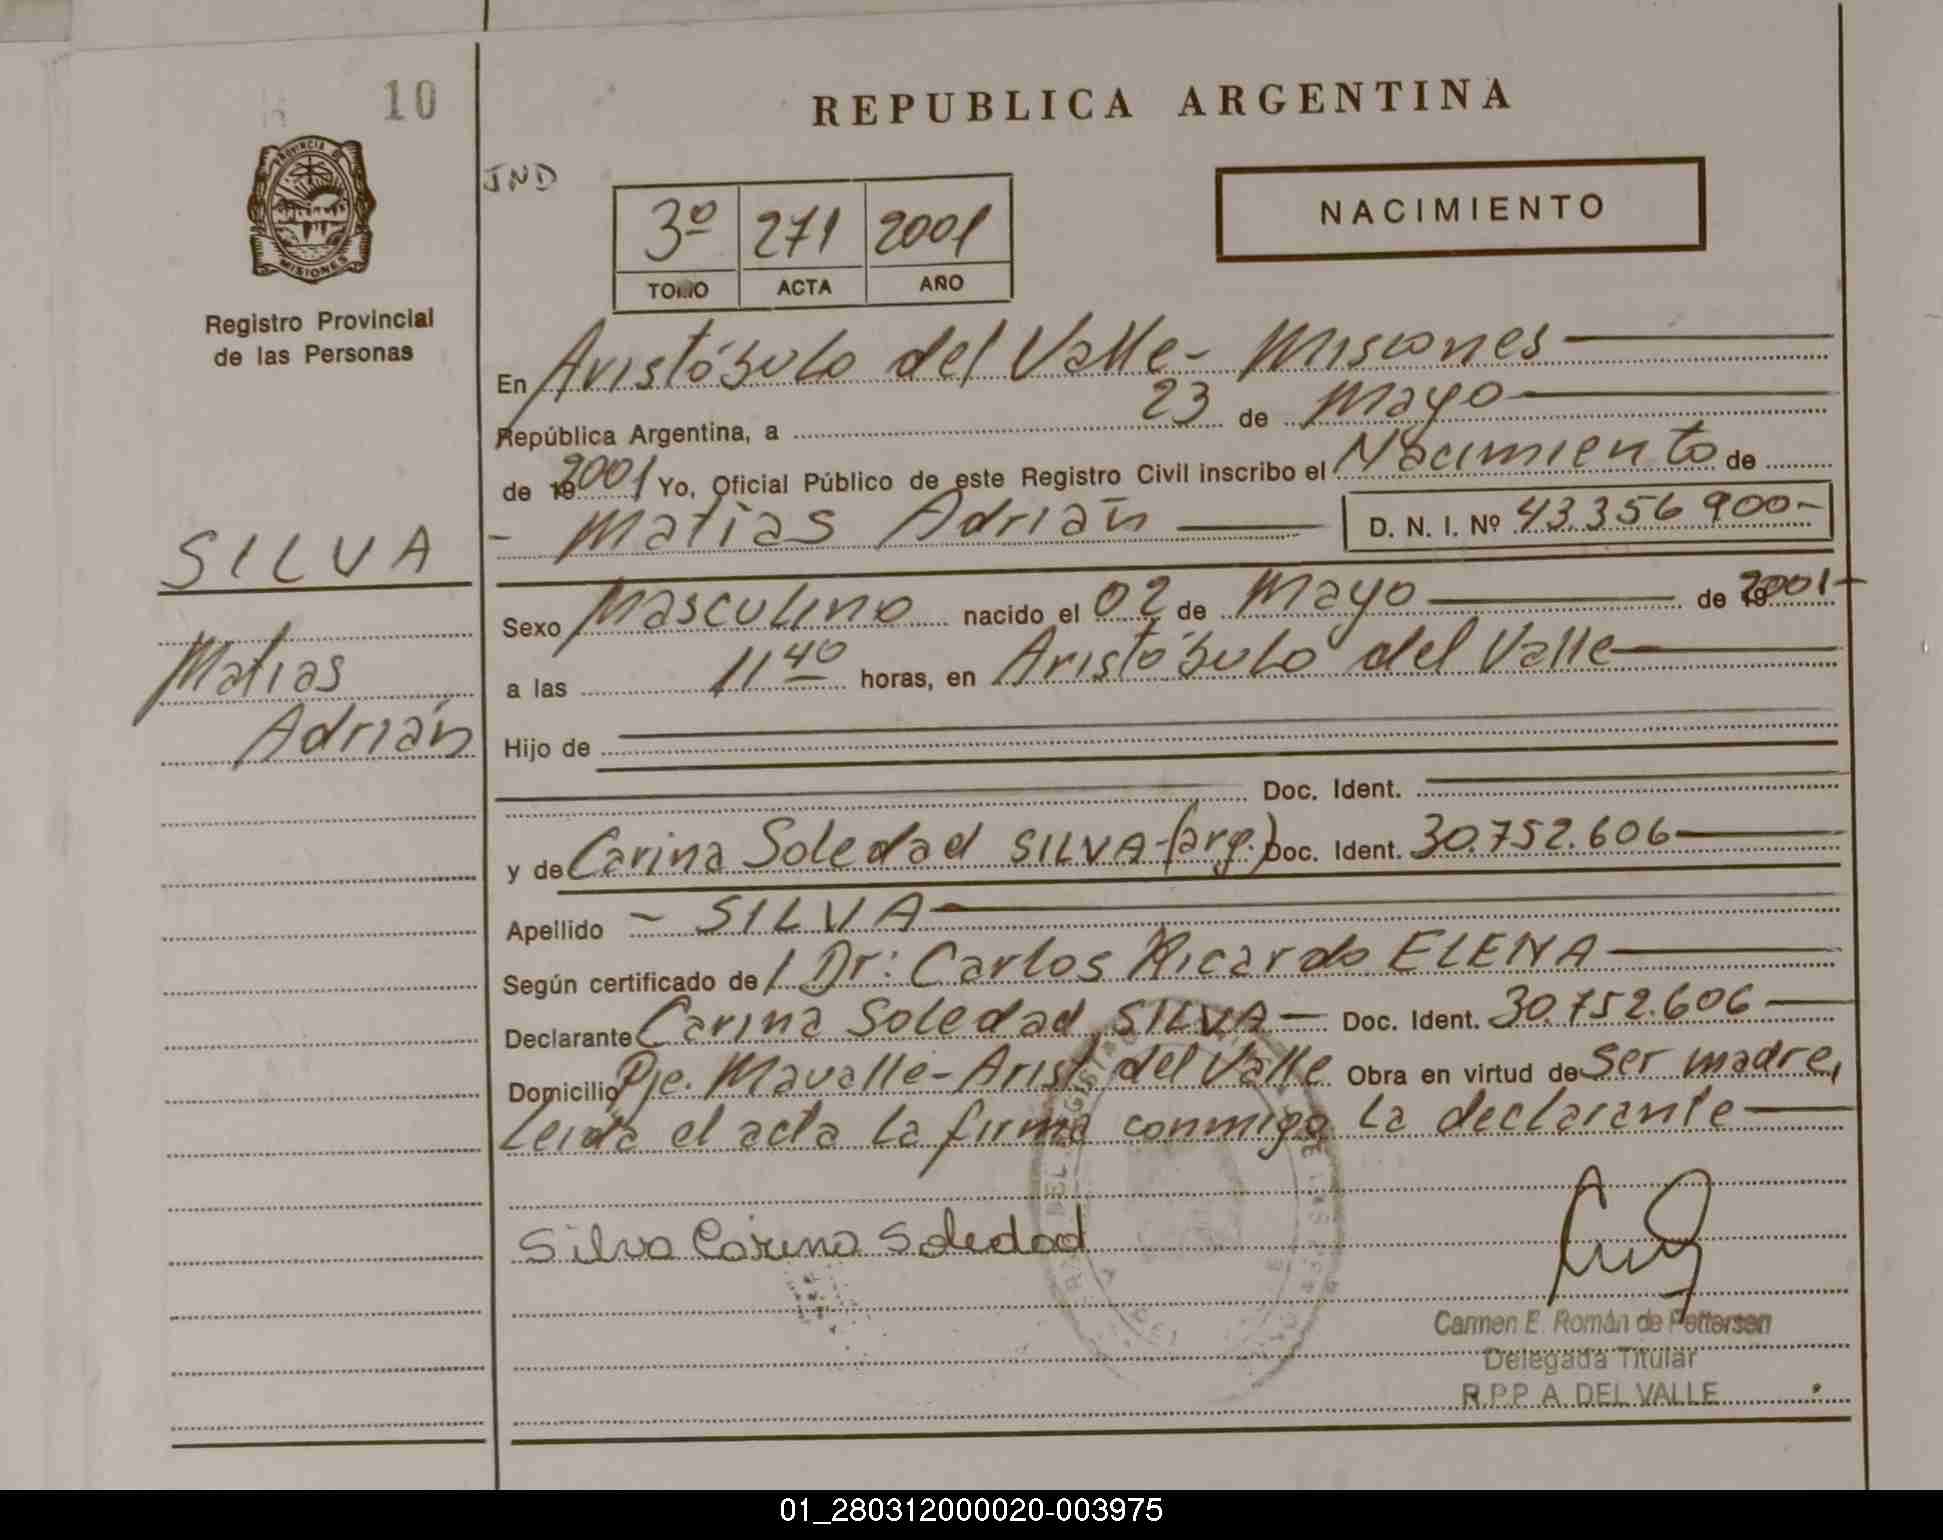 10
REPUBLICA ARGENTINA
PROVINCIA DE
MISIONES
Registro Provincial
de las Personas
IND
3º 271 2001
TOMO ACTA AÑO
NACIMIENTO
En Aristóbulo del Valle - Misiones
República Argentina, a 23 de Mayo
de 19 2001 Yo, Oficial Público de este Registro Civil inscribo el Nacimiento de
- Matías Adrián D. N. I. Nº 43.356.900-
SILVA
Matías
Adrián
Sexo Masculino nacido el 02 de Mayo de 19 2001
a las 11 40 horas, en Aristóbulo del Valle
Hijo de
Doc. Ident.
y de Carina Soledad SILVA - (arg.) Doc. Ident. 30.752.606
Apellido - SILVA
Según certificado de l Dr: Carlos Ricardo ELENA
Declarante Carina Soledad SILVA Doc. Ident. 30.752.606
Domicilio Pje. Mavalle - Arist. del Valle Obra en virtud de Ser madre,
Leída el acta la firma conmigo la declarante
Silva Carina Soledad
Carmen E. Román de Pettersen
Delegada Titular
R.P.P. A. DEL VALLE
01_280312000020-003975